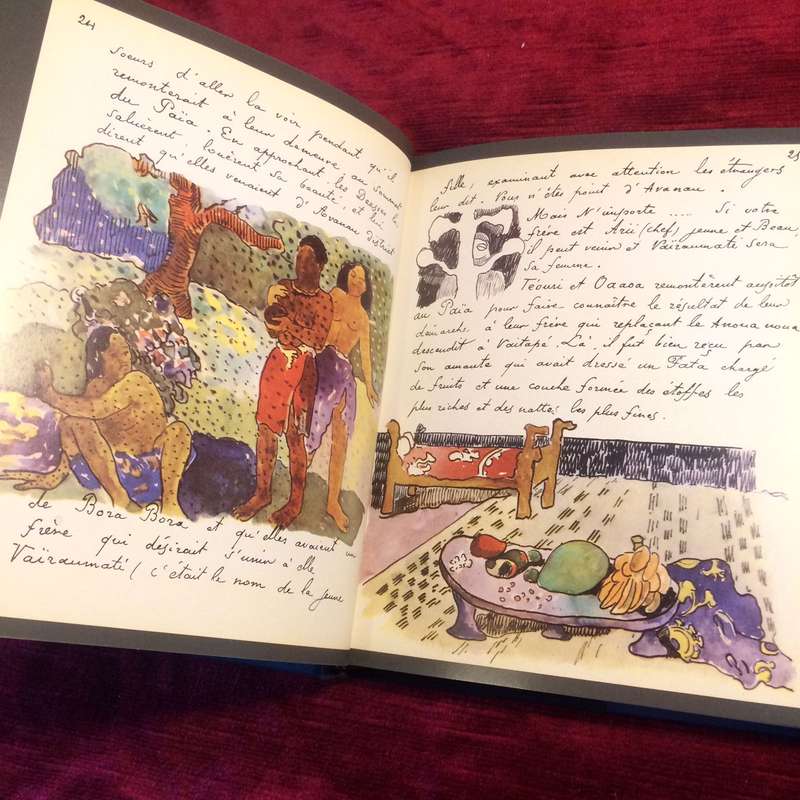 24
soeurs d'aller la voir pendant qu'il
remonterait à leur demeure au sommet
du Païa. En approchant, les Déesses la
saluèrent, louèrent sa beauté, et lui
dirent qu'elles venaient d'Avanau, district
de Bora Bora et qu'elles avaient un
frère qui désirait s'unir à elle
Vaïraumati (c'était le nom de la jeune
25
fille; examinant avec attention les étrangers
leur dit. Vous n'êtes point d'Avanau.
Mais N'importe .... Si votre
frère est Arii (chef) jeune et Beau,
il peut venir et Vaïraumati sera
sa femme.
Téouri et Oaaoa remontèrent aussitôt
au Païa pour faire connaître le résultat de leur
démarche, à leur frère qui replaçant le Anoua noua
descendit à Vaïtapé. Là, il fut bien reçu par
son amante qui avait dressé un Fata chargé
de fruits et une couche formée des étoffes les
plus riches et des nattes les plus fines.